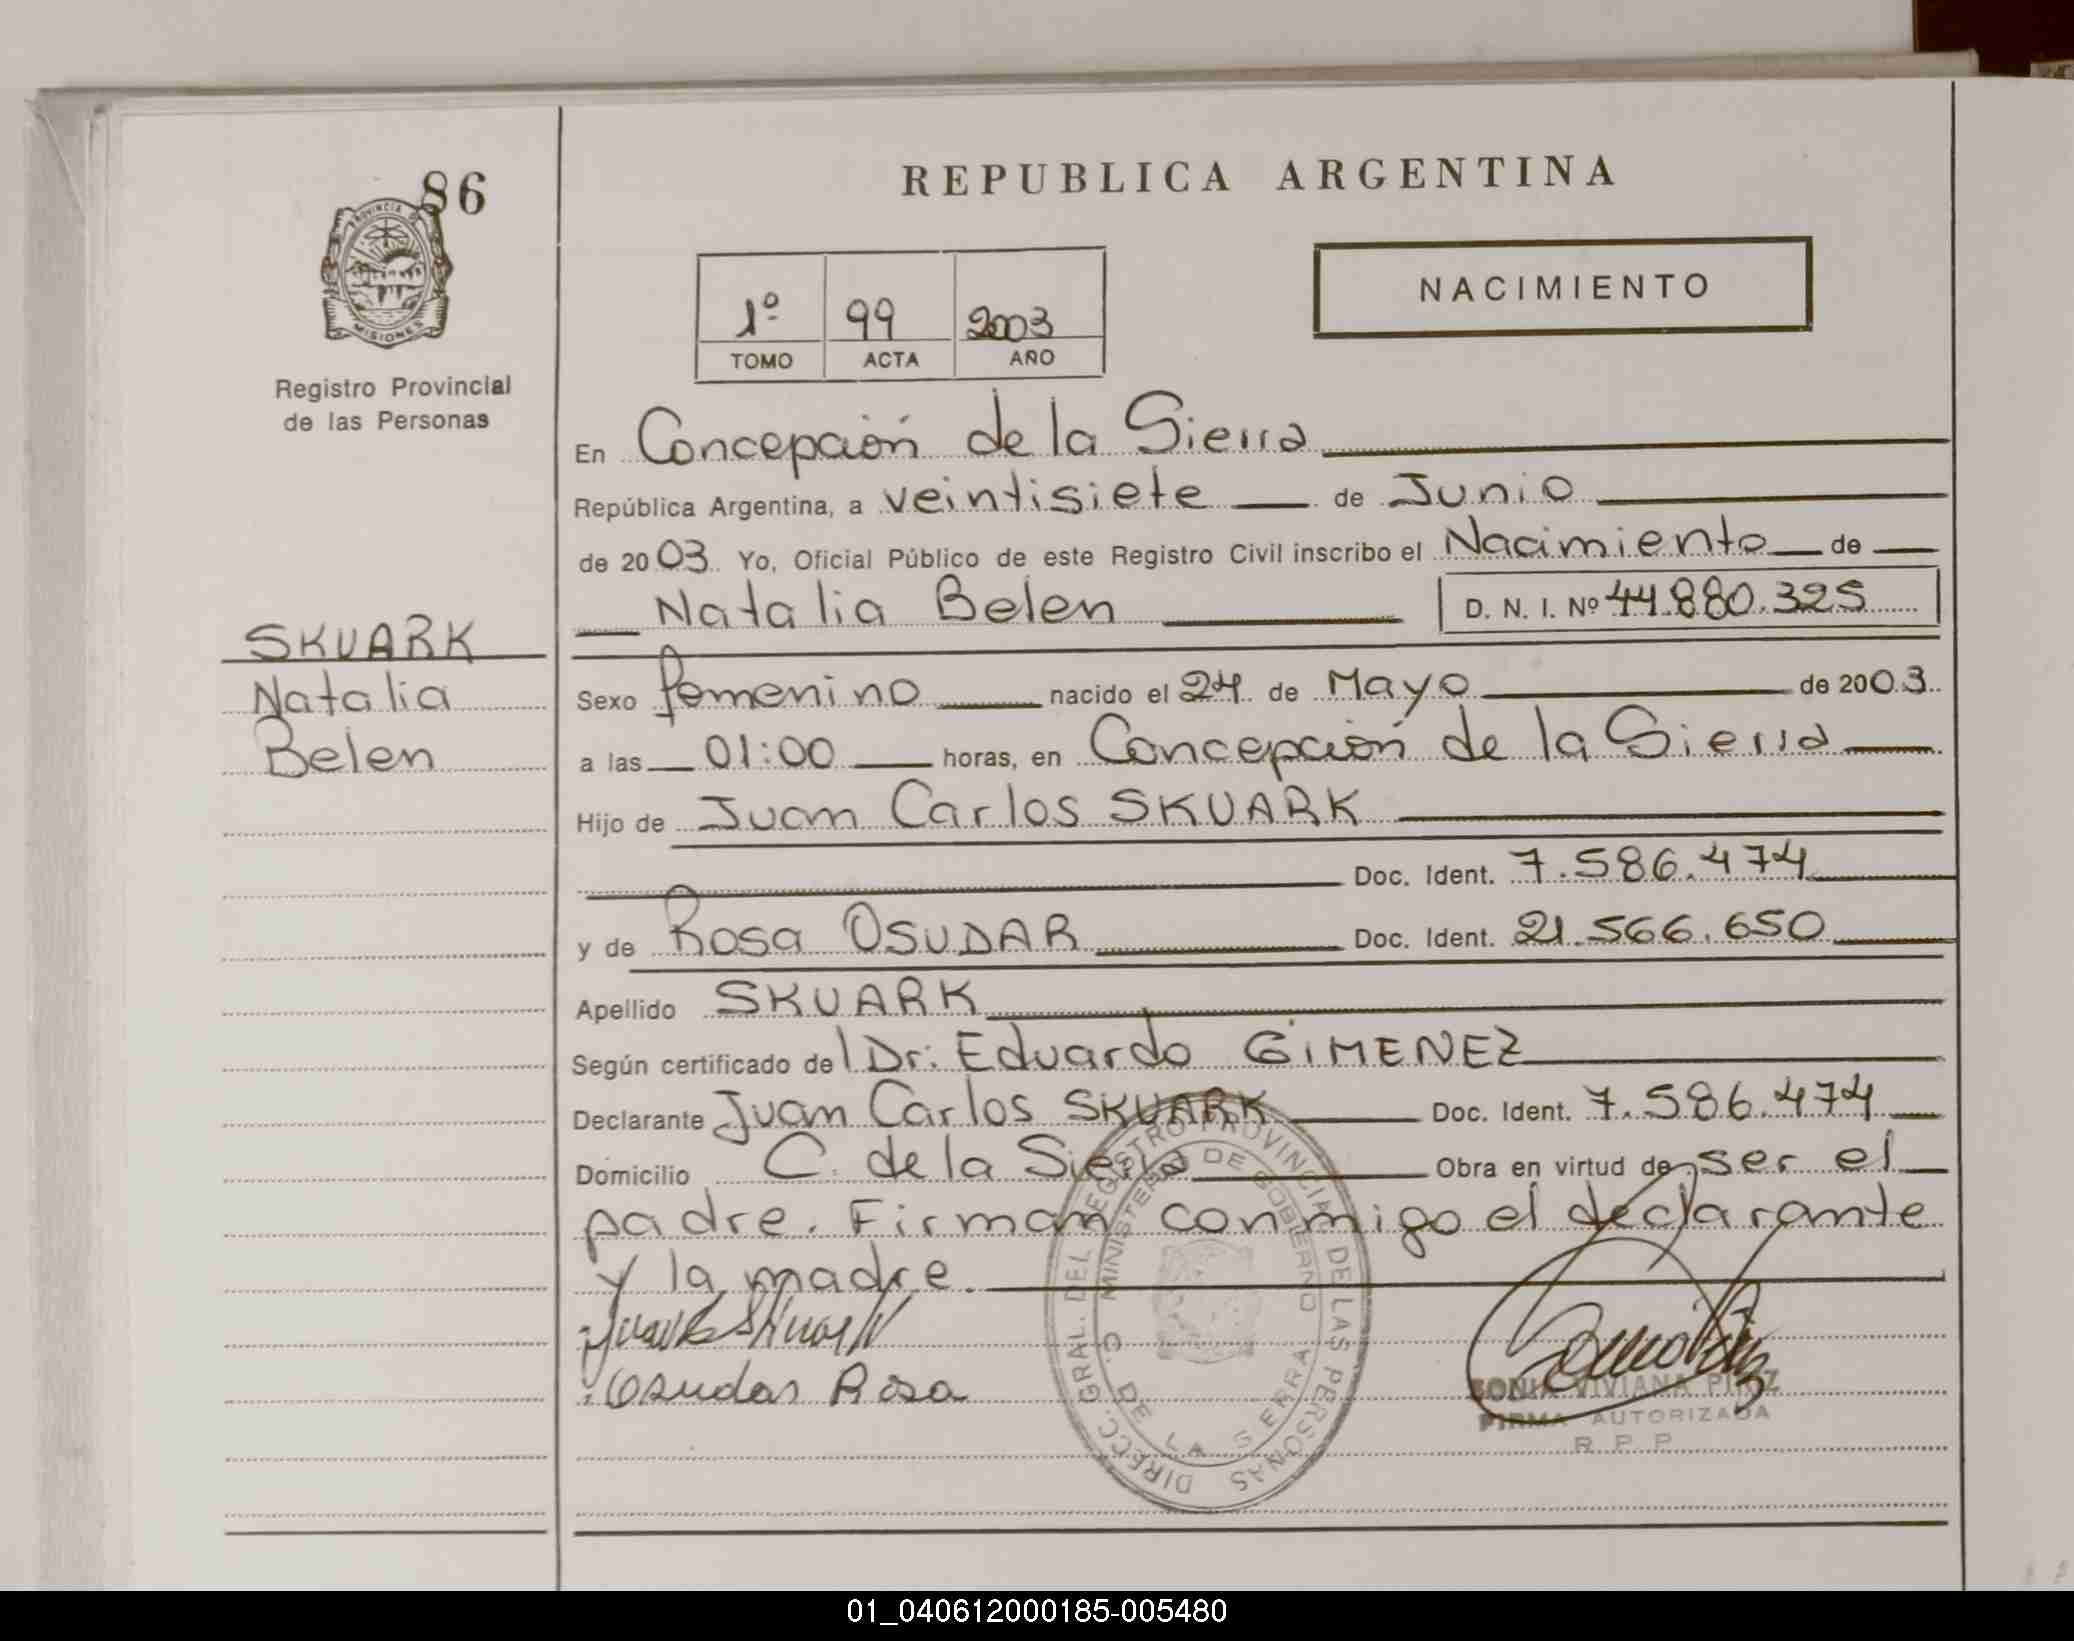 86
PROVINCIA DE
MISIONES
Registro Provincial
de las Personas
SKUARK
Natalia
Belen
REPUBLICA ARGENTINA
NACIMIENTO
1º 99 2003
TOMO ACTA AÑO
En Concepción de la Sierra
República Argentina, a veintisiete de Junio
de 2003. Yo, Oficial Público de este Registro Civil inscribo el Nacimiento de
Natalia Belen D. N. I. Nº 44.880.325
Sexo femenino nacido el 24 de Mayo de 2003.
a las 01:00 horas, en Concepción de la Sierra
Hijo de Juan Carlos SKUARK
Doc. Ident. 7.586.474
y de Rosa OSUDAR Doc. Ident. 21.566.650
Apellido SKUARK
Según certificado de Dr: Eduardo GIMENEZ
Declarante Juan Carlos SKUARK Doc. Ident. 7.586.474
Domicilio C. de la Sierra Obra en virtud de ser el
padre. Firman conmigo el declarante
y la madre.
Osudar Rosa
DIRECC. GRAL. DEL REGISTRO PROVINCIAL DE LAS PERSONAS
MINISTERIO DE GOBIERNO
C. DE LA SIERRA
SONIA VIVIANA PIRIZ
FIRMA AUTORIZADA
R P P
01_040612000185-005480